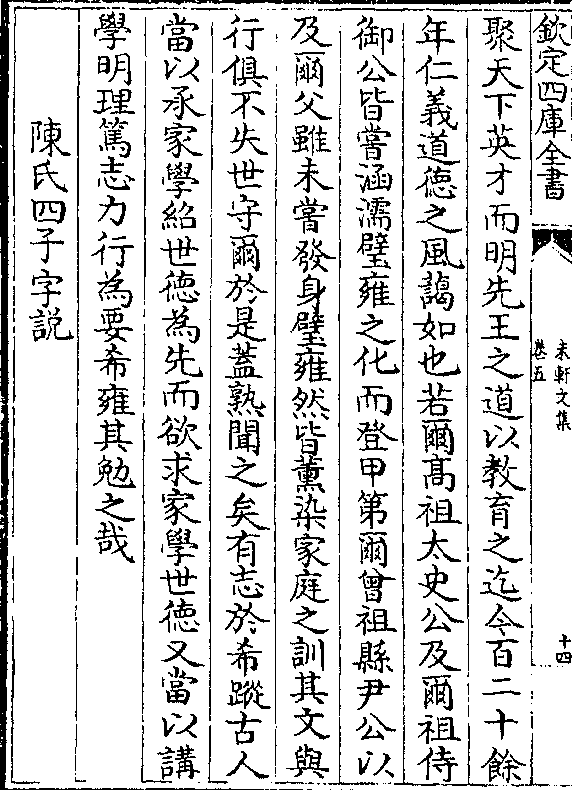 欽定四庫全書
未軒文集
卷五
十四
聚天下英才而明先王之道以教育之迄今百二十餘
年仁義道德之風藹如也若爾高祖太史公及爾祖侍
御公皆嘗涵濡璧雍之化而登甲第爾曾祖縣尹公以
及爾父雖未嘗發身璧雍然皆薰染家庭之訓其文與
行俱不失世守爾於是蓋熟聞之矣有志於希蹤古人
當以承家學紹世德為先而欲求家學世德又當以講
學明理篤志力行為要希雍其勉之哉
陳氏四子字説